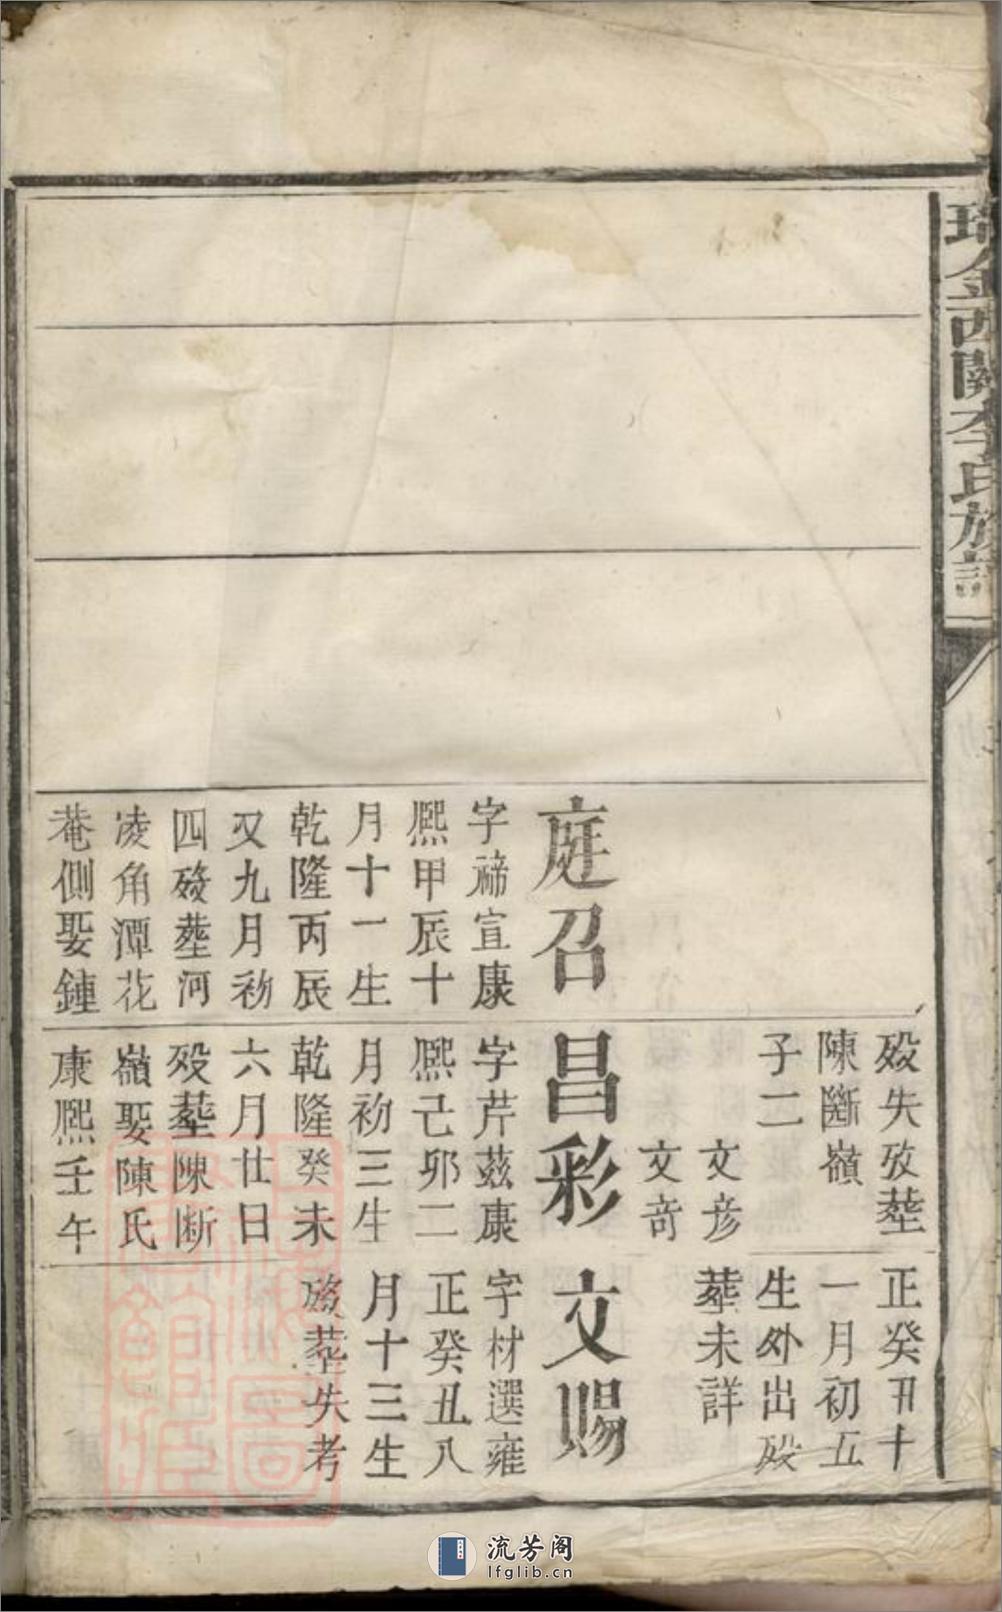 瑞金西關李氏族譜
庭召
字禘宣康
熙甲辰十
月十一生
乾隆丙辰
又九月初
四殁塟河
凌角潭花
菴側娶鍾
殁失攷塟
陳斷嶺
子二
文彦
文竒
昌彩
字芹茲康
熙己卯二
月初三生
乾隆癸未
六月廿日
殁塟陳断
嶺娶陳氏
康熙壬午
正癸丑十
一月初五
生外出殁
塟未詳
文賜
字材選雍
正癸丑八
月十三生
殁塟失考
流芳阁
lfglib.cn